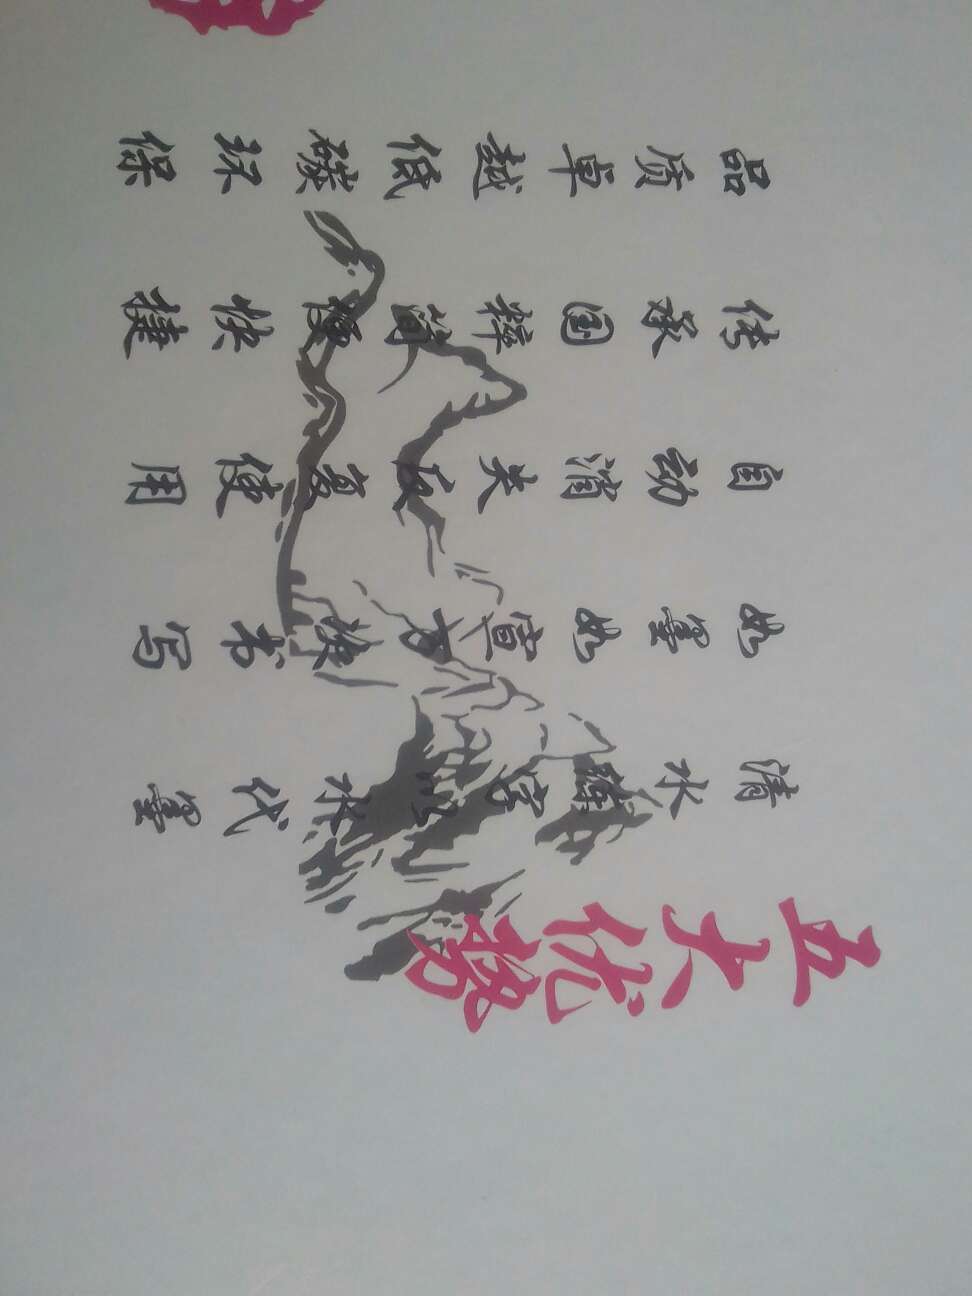 五大优势
清水练字以水代墨
如墨如宣方便书写
自动消失反复使用
传承国粹简便快捷
品质卓越低碳环保